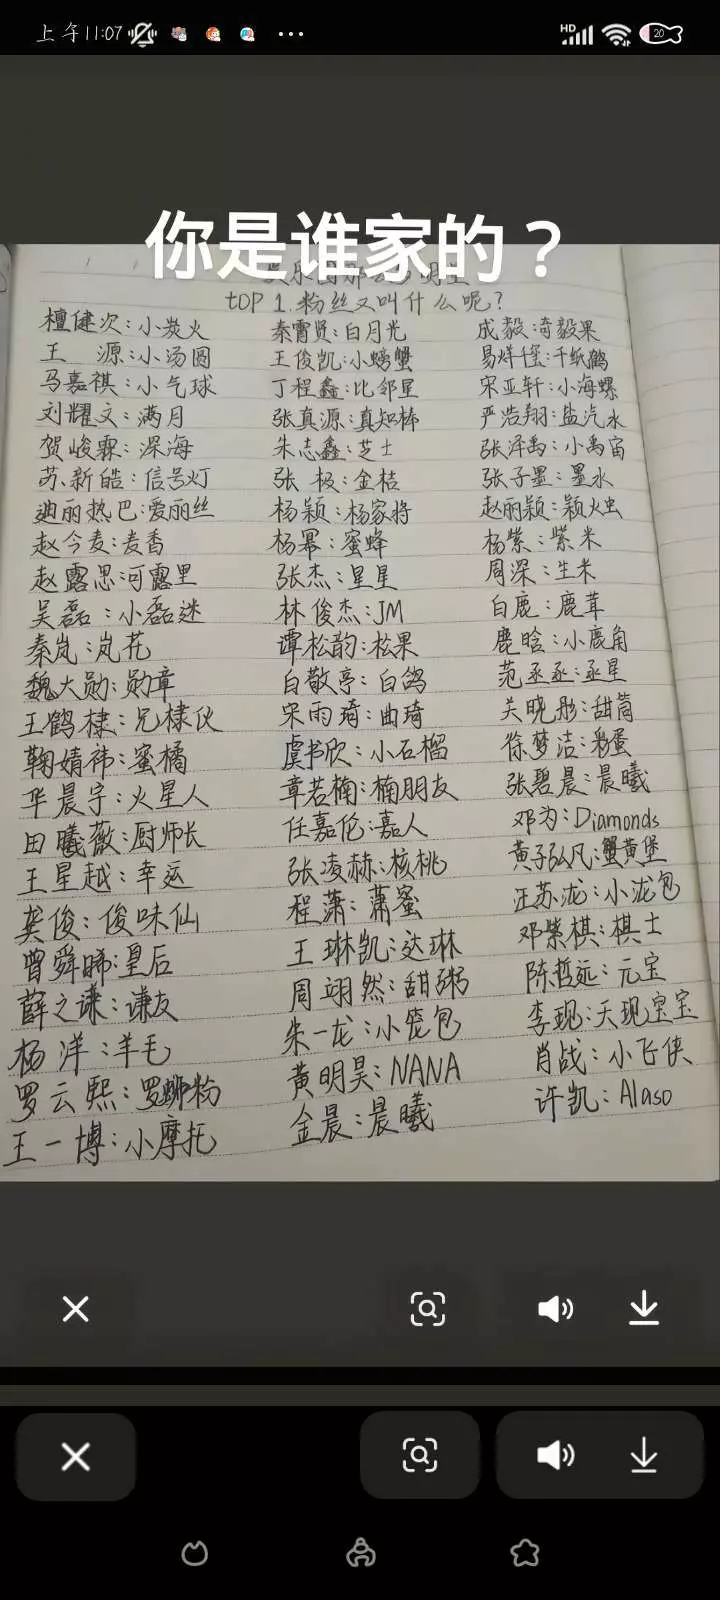 上午11:07
HD
20
你是谁家的？
top 1.粉丝又叫什么呢？
檀健次：小炎火 秦霄贤：白月光 成毅：奇毅果
王 源：小汤圆 王俊凯：小螃蟹 易烊千玺：千纸鹤
马嘉祺：小气球 丁程鑫：比邻星 宋亚轩：小海螺
刘耀文：满月 张真源：真知棒 严浩翔：盐汽水
贺峻霖：深海 朱志鑫：芝士 张泽禹：小禹宙
苏新皓：信号灯 张 极：金桔 张子墨：墨水
迪丽热巴：爱丽丝 杨颖：杨家将 赵丽颖：颖火虫
赵今麦：麦香 杨幂：蜜蜂 杨紫：紫米
赵露思：可露里 张杰：星星 周深：生米
吴磊：小磊迷 林俊杰：JM 白鹿：鹿茸
秦岚：岚花 谭松韵：松果 鹿晗：小鹿角
魏大勋：勋章 白敬亭：白鸽 范丞丞：丞星
王鹤棣：兄棣伙 宋雨琦：曲琦 关晓彤：甜筒
鞠婧祎：蜜橘 虞书欣：小石榴 徐梦洁：彩蛋
华晨宇：火星人 章若楠：楠朋友 张碧晨：晨曦
田曦薇：厨师长 任嘉伦：嘉人 邓为：Diamonds
王星越：幸运 张凌赫：核桃 黄子弘凡：蟹黄堡
龚俊：俊味仙 程潇：潇蜜 汪苏泷：小泷包
曾舜晞：皇后 王琳凯：达琳 邓紫棋：棋士
薛之谦：谦友 周翊然：甜粥 陈哲远：元宝
杨 洋：羊毛 朱一龙：小笼包 李现：天现宝宝
罗云熙：罗蛳粉 黄明昊：NANA 肖战：小飞侠
王一博：小摩托 金晨：晨曦 许凯：Alaso